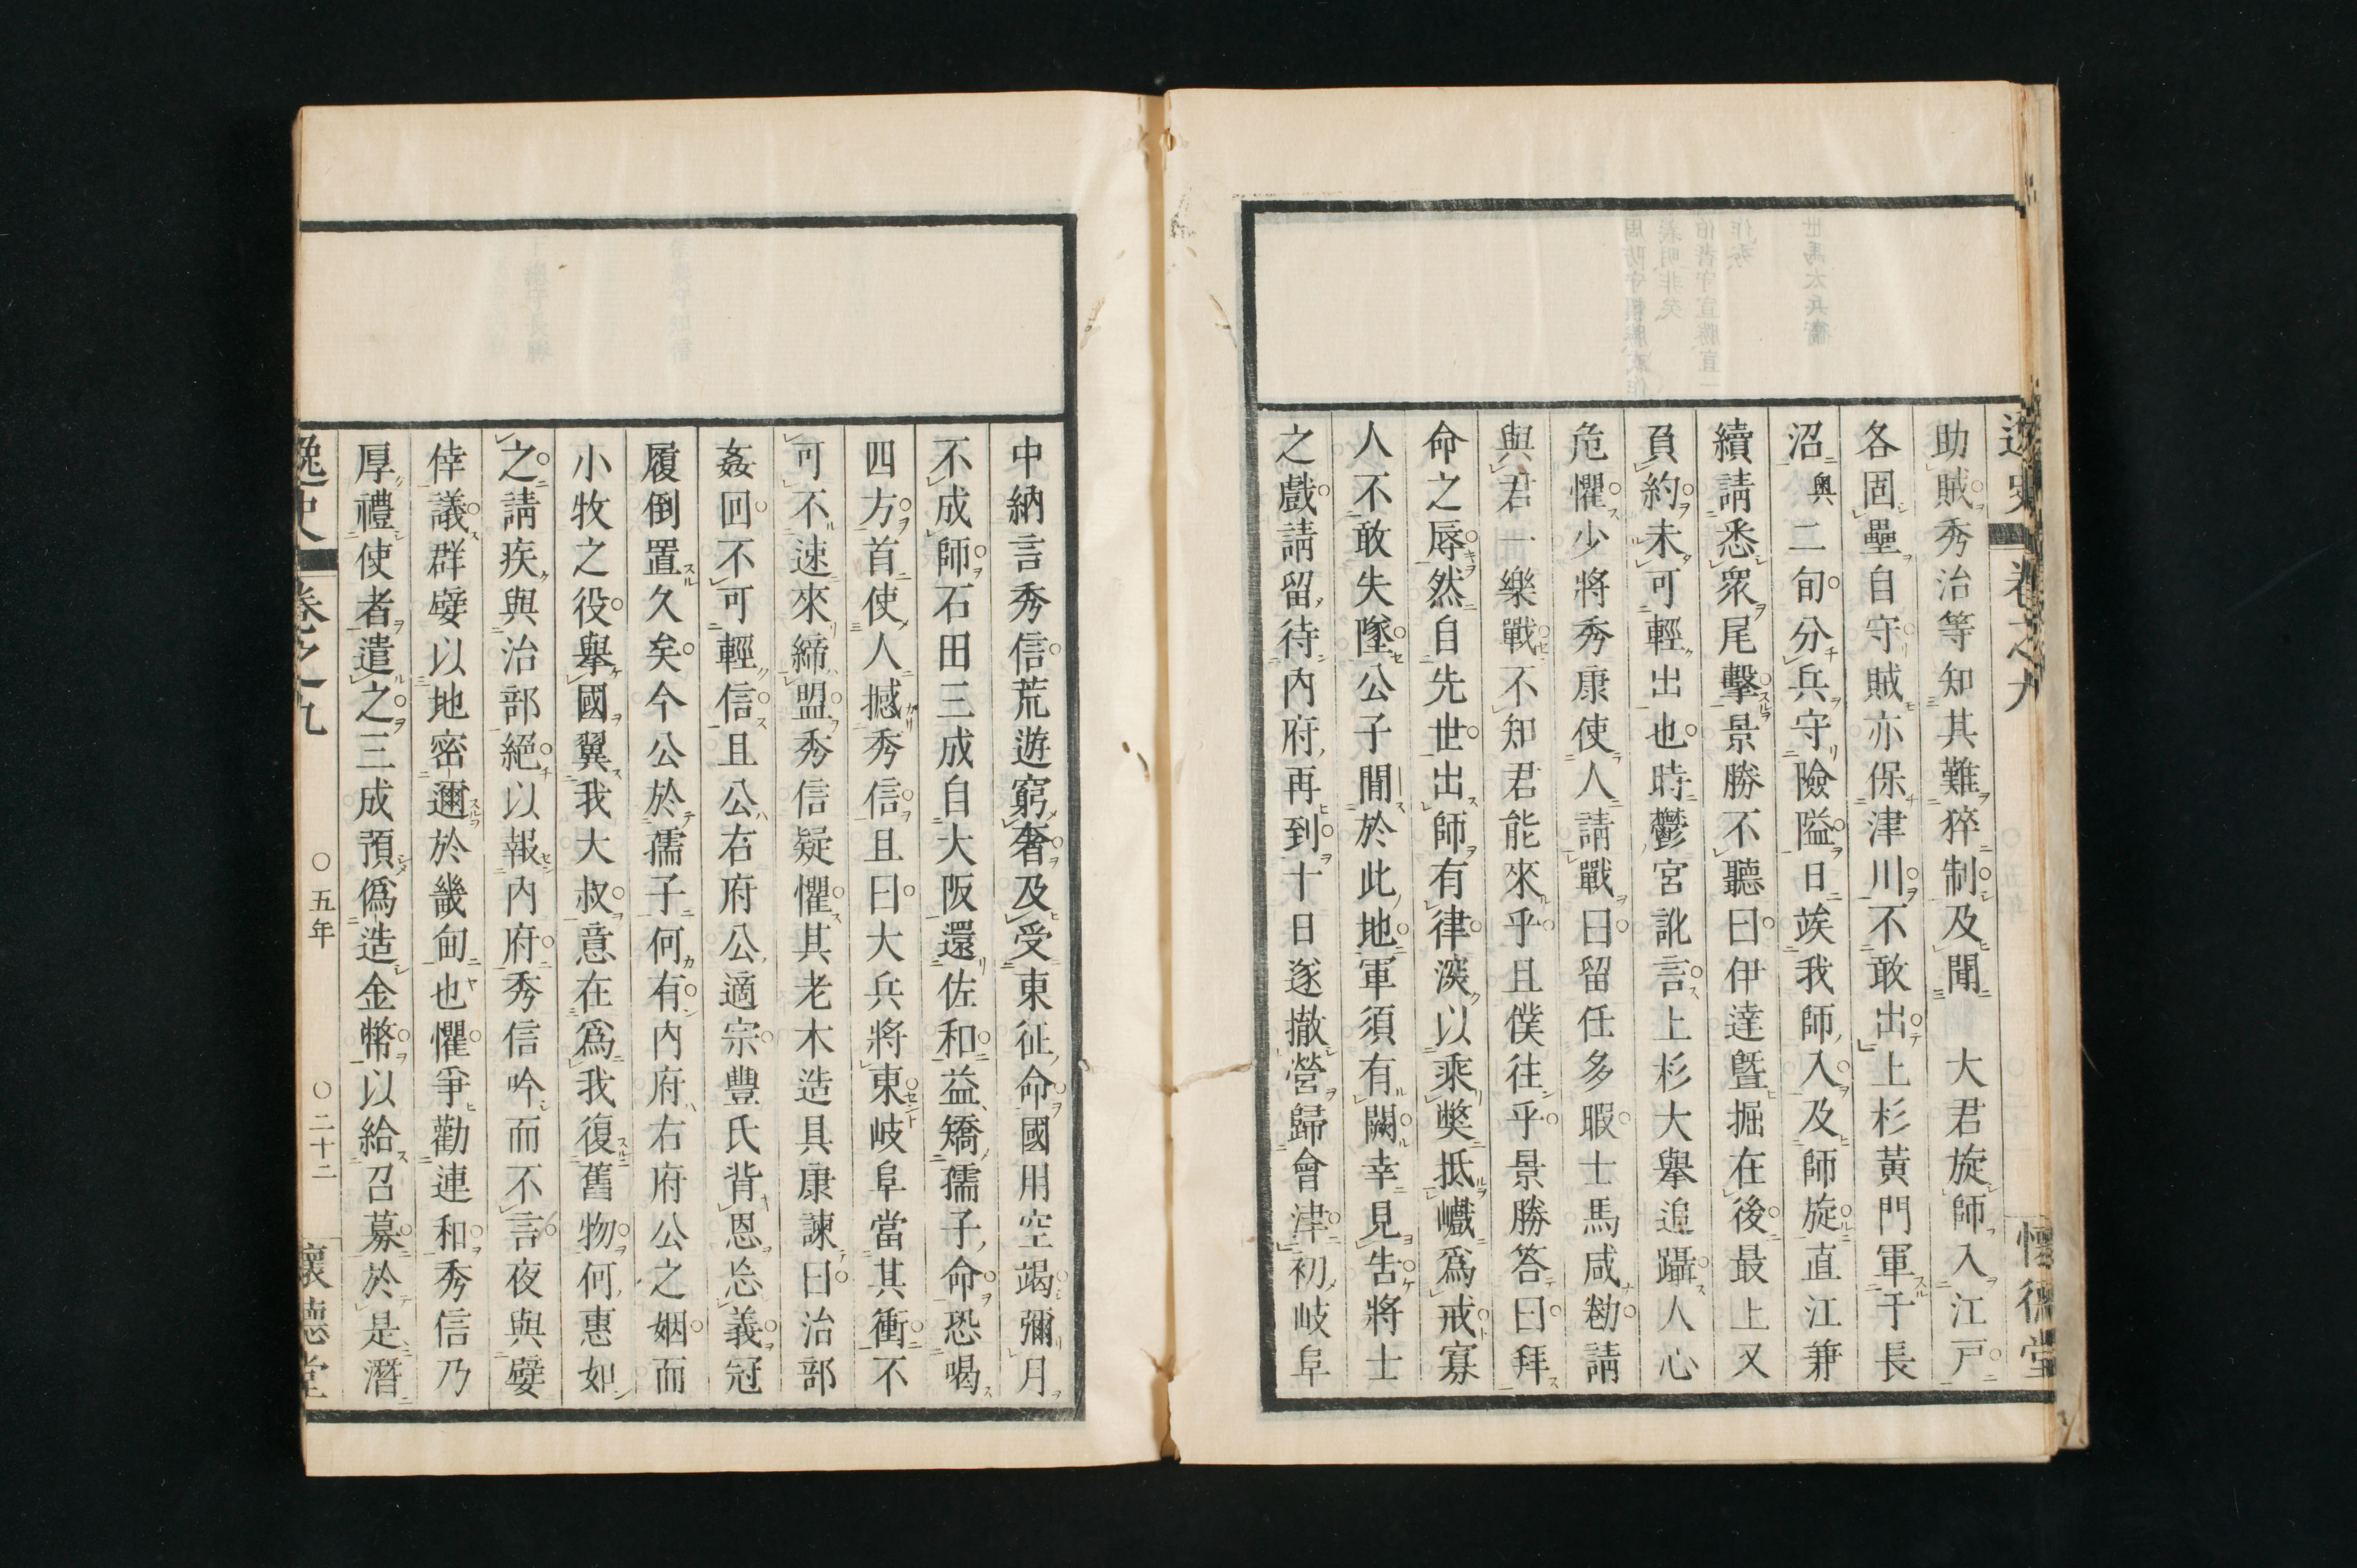 逸史 卷之九 懷德堂
助賊秀治等知其難猝制及聞 大君旋師入江戸
各固壘自守賊亦保津川不敢出上杉黃門軍于長
沼奥二旬分兵守險隘日竢我師入及師旋直江兼
續請悉眾尾擊景勝不聽曰伊達曁掘在後最上又
負約未可輕出也時鬱宮訛言上杉大擧追躡人心
危懼少將秀康使人請戰曰留任多暇士馬咸勌請
與君一樂戰不知君能來乎且僕往乎景勝答曰拜
命之辱然自先世出師有律深以乘獘抵巇爲戒寡
人不敢失墜公子閒於此地軍須有闕幸見吿將士
之戲請留待内府再到十日遂撤營歸會津初岐阜
中納言秀信荒遊窮奢及受東征命國用空竭彌月
不成師石田三成自大阪還佐和益矯孺子命恐喝
四方首使人撼秀信且曰大兵將東岐阜當其衝不
可不速來締盟秀信疑懼其老木造具康諫曰治部
姦回不可輕信且公右府公適宗豐氏背恩忘義冠
履倒置久矣今公於孺子何有内府右府公之姻而
小牧之役擧國翼我大叔意在爲我復舊物何惠如
之請疾與治部絕以報内府秀信吟而不言夜與嬖
倖議群嬖以地密邇於畿甸也懼爭勸連和秀信乃
厚禮使者遣之三成預僞造金幣以給召募於是潛
逸史 卷之九 ○五年 ○二十二 懷德堂